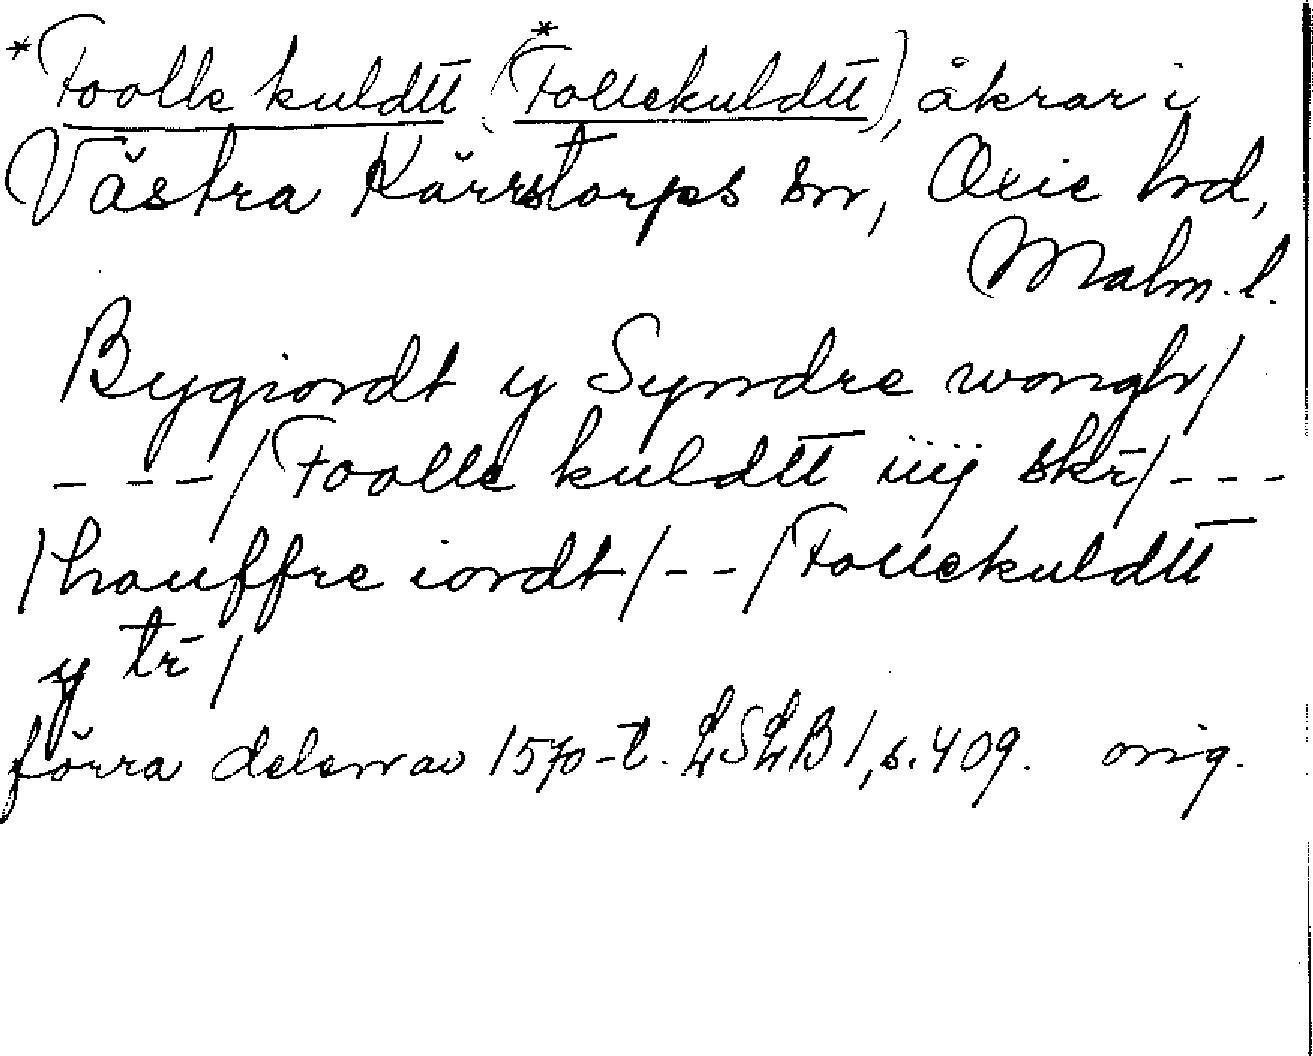 *Foolle kuldtt (*Follekuldtt), åkrar i
Västra Kärrstorps sn, Oxie hd,
Malm. l.
Bygiordt y Syndre wongh/
---/Foolle kuldtt iiij skr̄/---
/houffre iordt/--/Follekuldtt
y tr̄/
förra delen av 1570-t. LSLB 1, s. 409. orig.